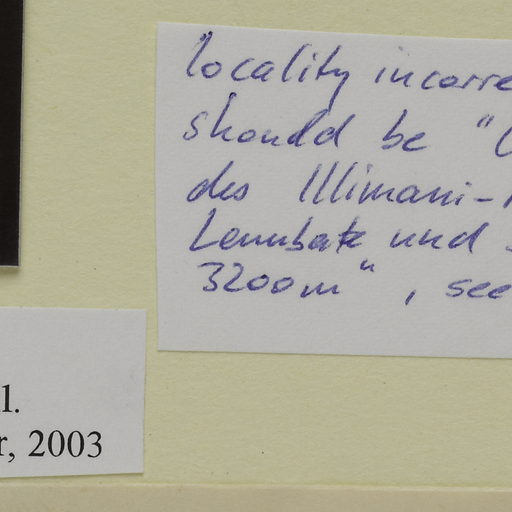 locality incorre
should be "
des Illimani-
Lennbate und
3200m", see
l.
r, 2003